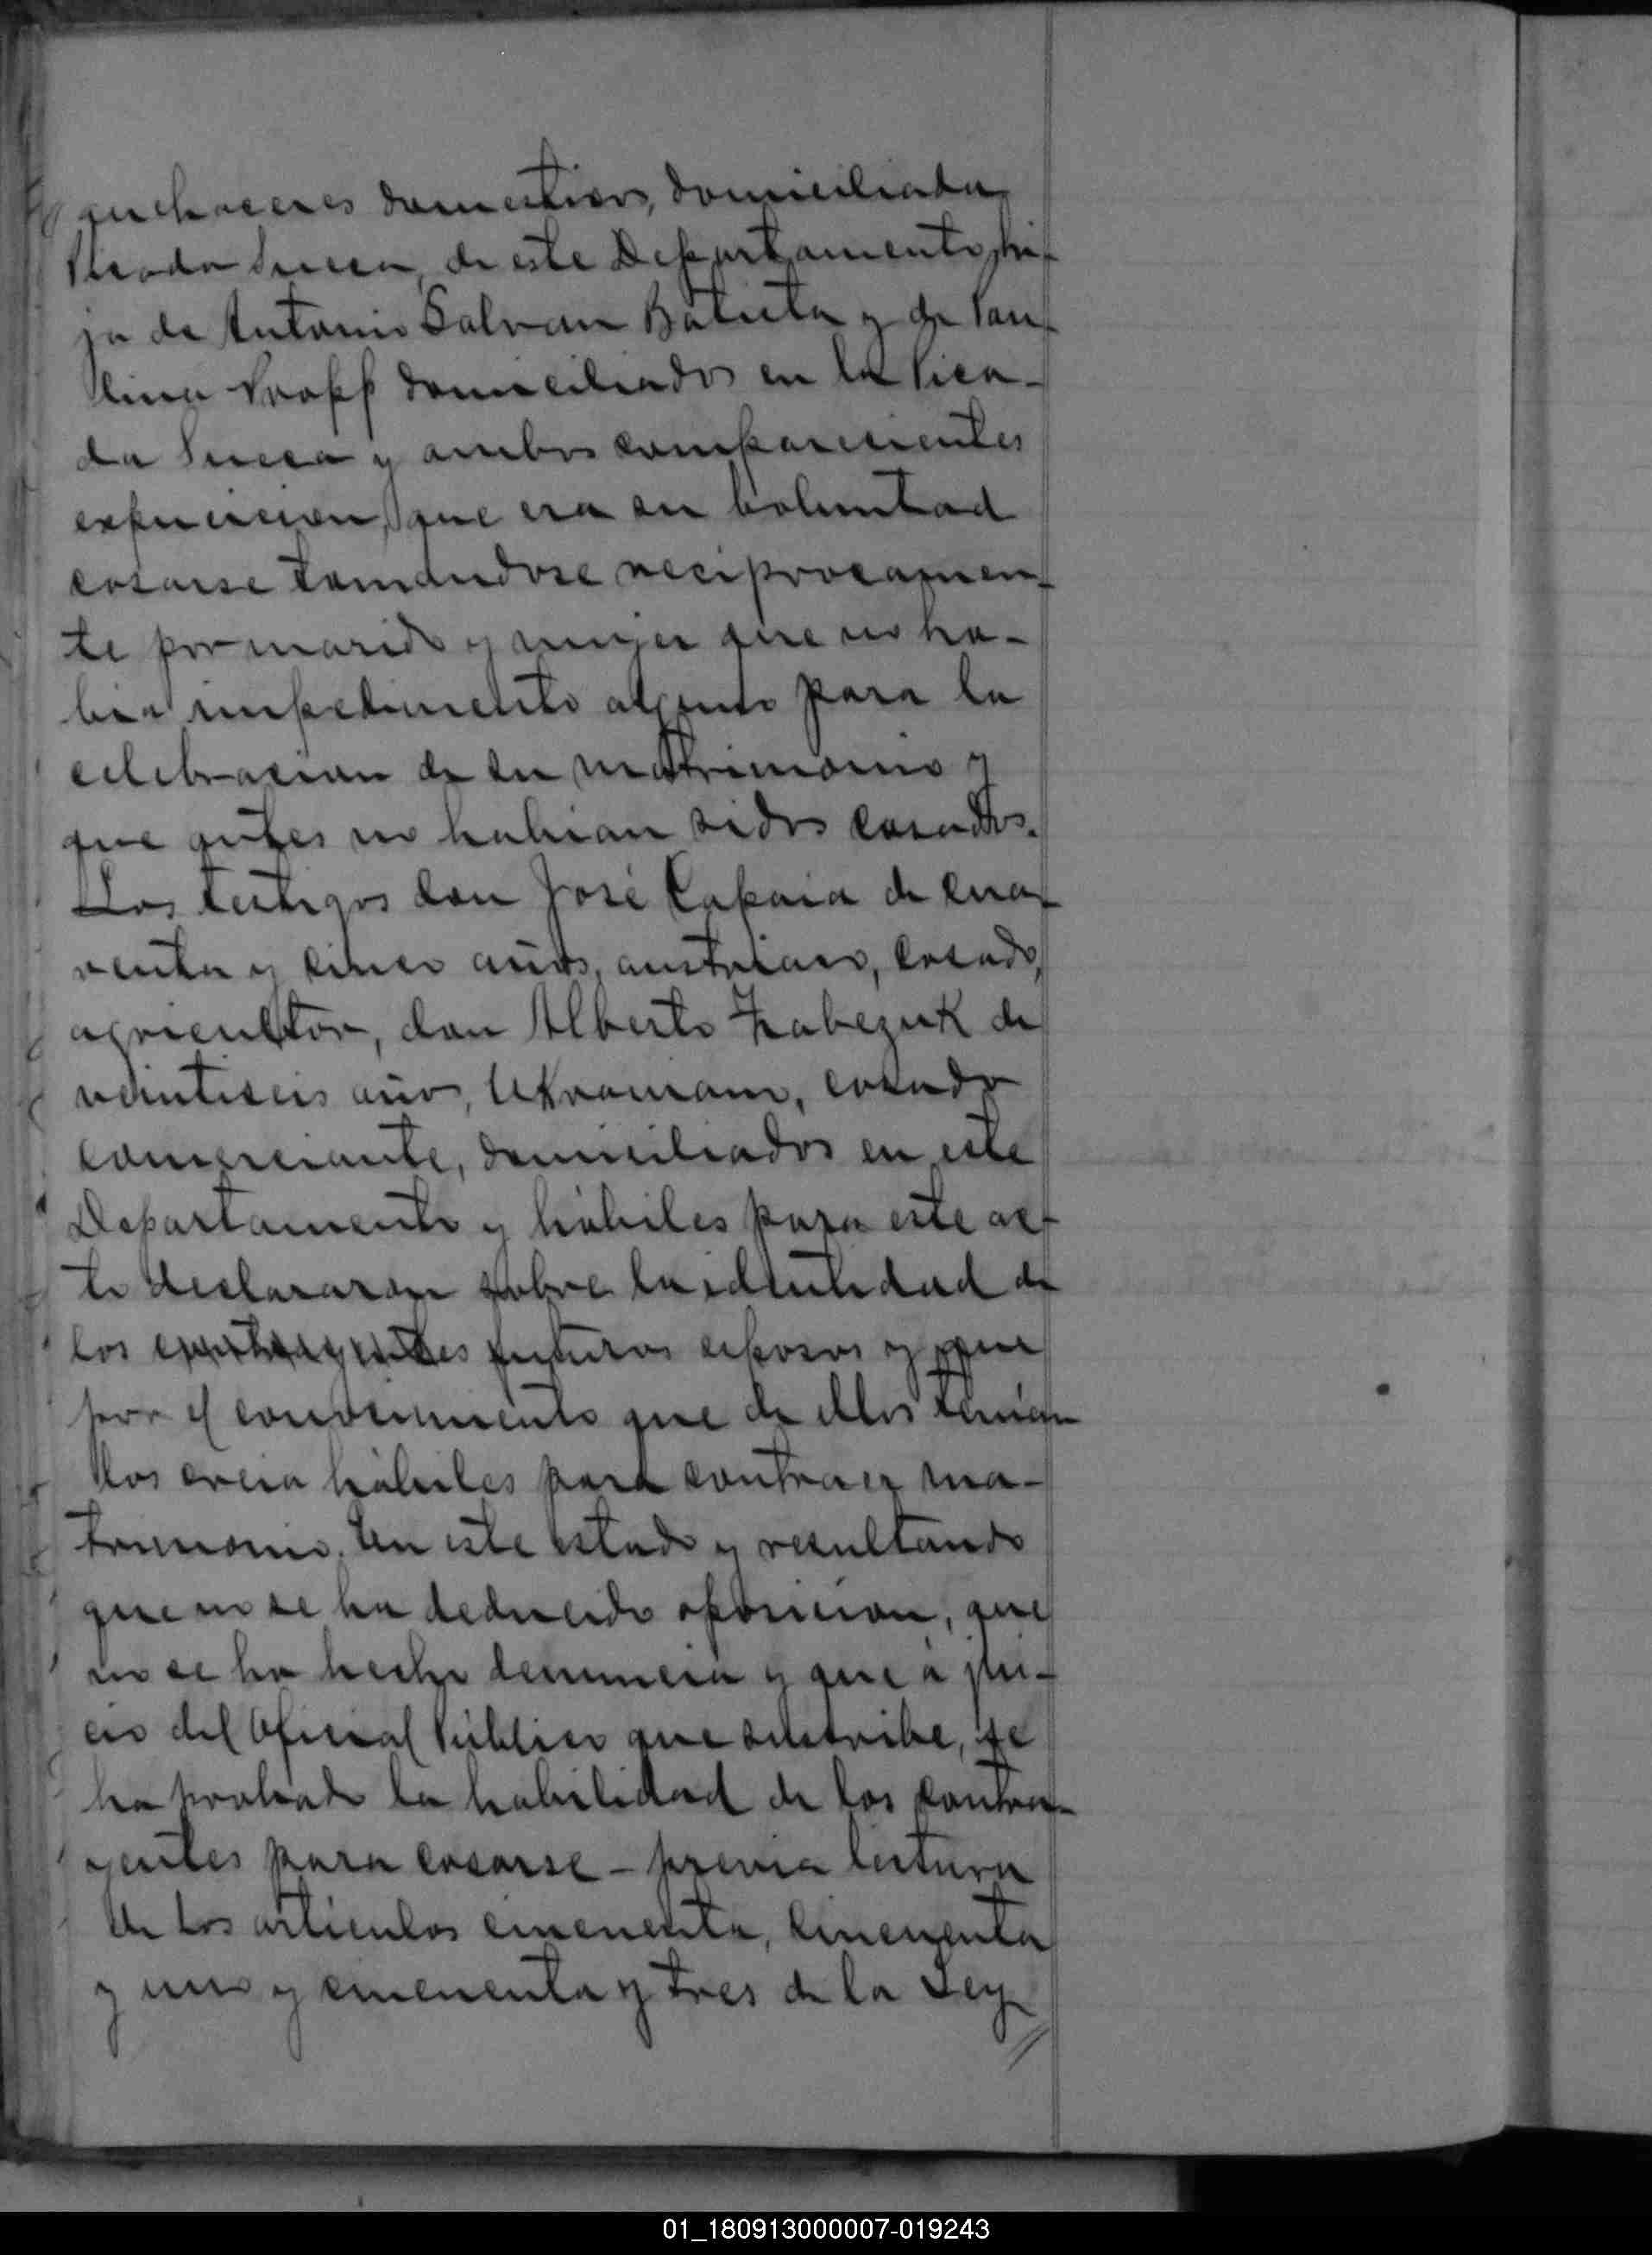 quehaceres domesticos, domiciliada
Picada Sueca, de este Departamento, hi-
ja de Antonio Salvan Batista y de Pau-
lina Propp domiciliados en la Pica-
da Sueca y ambos comparecientes
expucieron, que era su boluntad
casarse tomandose reciprocamen-
te por marido y mujer que no ha-
bia impedimento alguno para la
celebracion de su matrimonio y
que antes no habian sidos casados.
Los testigos don José Capaia de cua-
renta y cinco años, austriaco, casado,
agricultor, don Alberto Trabezuk de
veintiseis años, Ukraniano, casado
comerciante, domiciliados en este
Departamento y hábiles para este ac-
to declararon sobre la identidad de
los contrayentes futuros esposos y que
por el conocimiento que de ellos tenian
los creia hábiles para contraer ma-
trimonio. En este estado y resultando
que no se ha deducido oposicion, que
no se ha hecho denuncia y que á jui-
cio del Oficial Público que suscribe, se
ha probado la habilidad de los contra-
yentes para casarse - previa lectura
de los articulos cincuenta, cincuenta
y uno y cincuenta y tres de la Ley
01_180913000007-019243